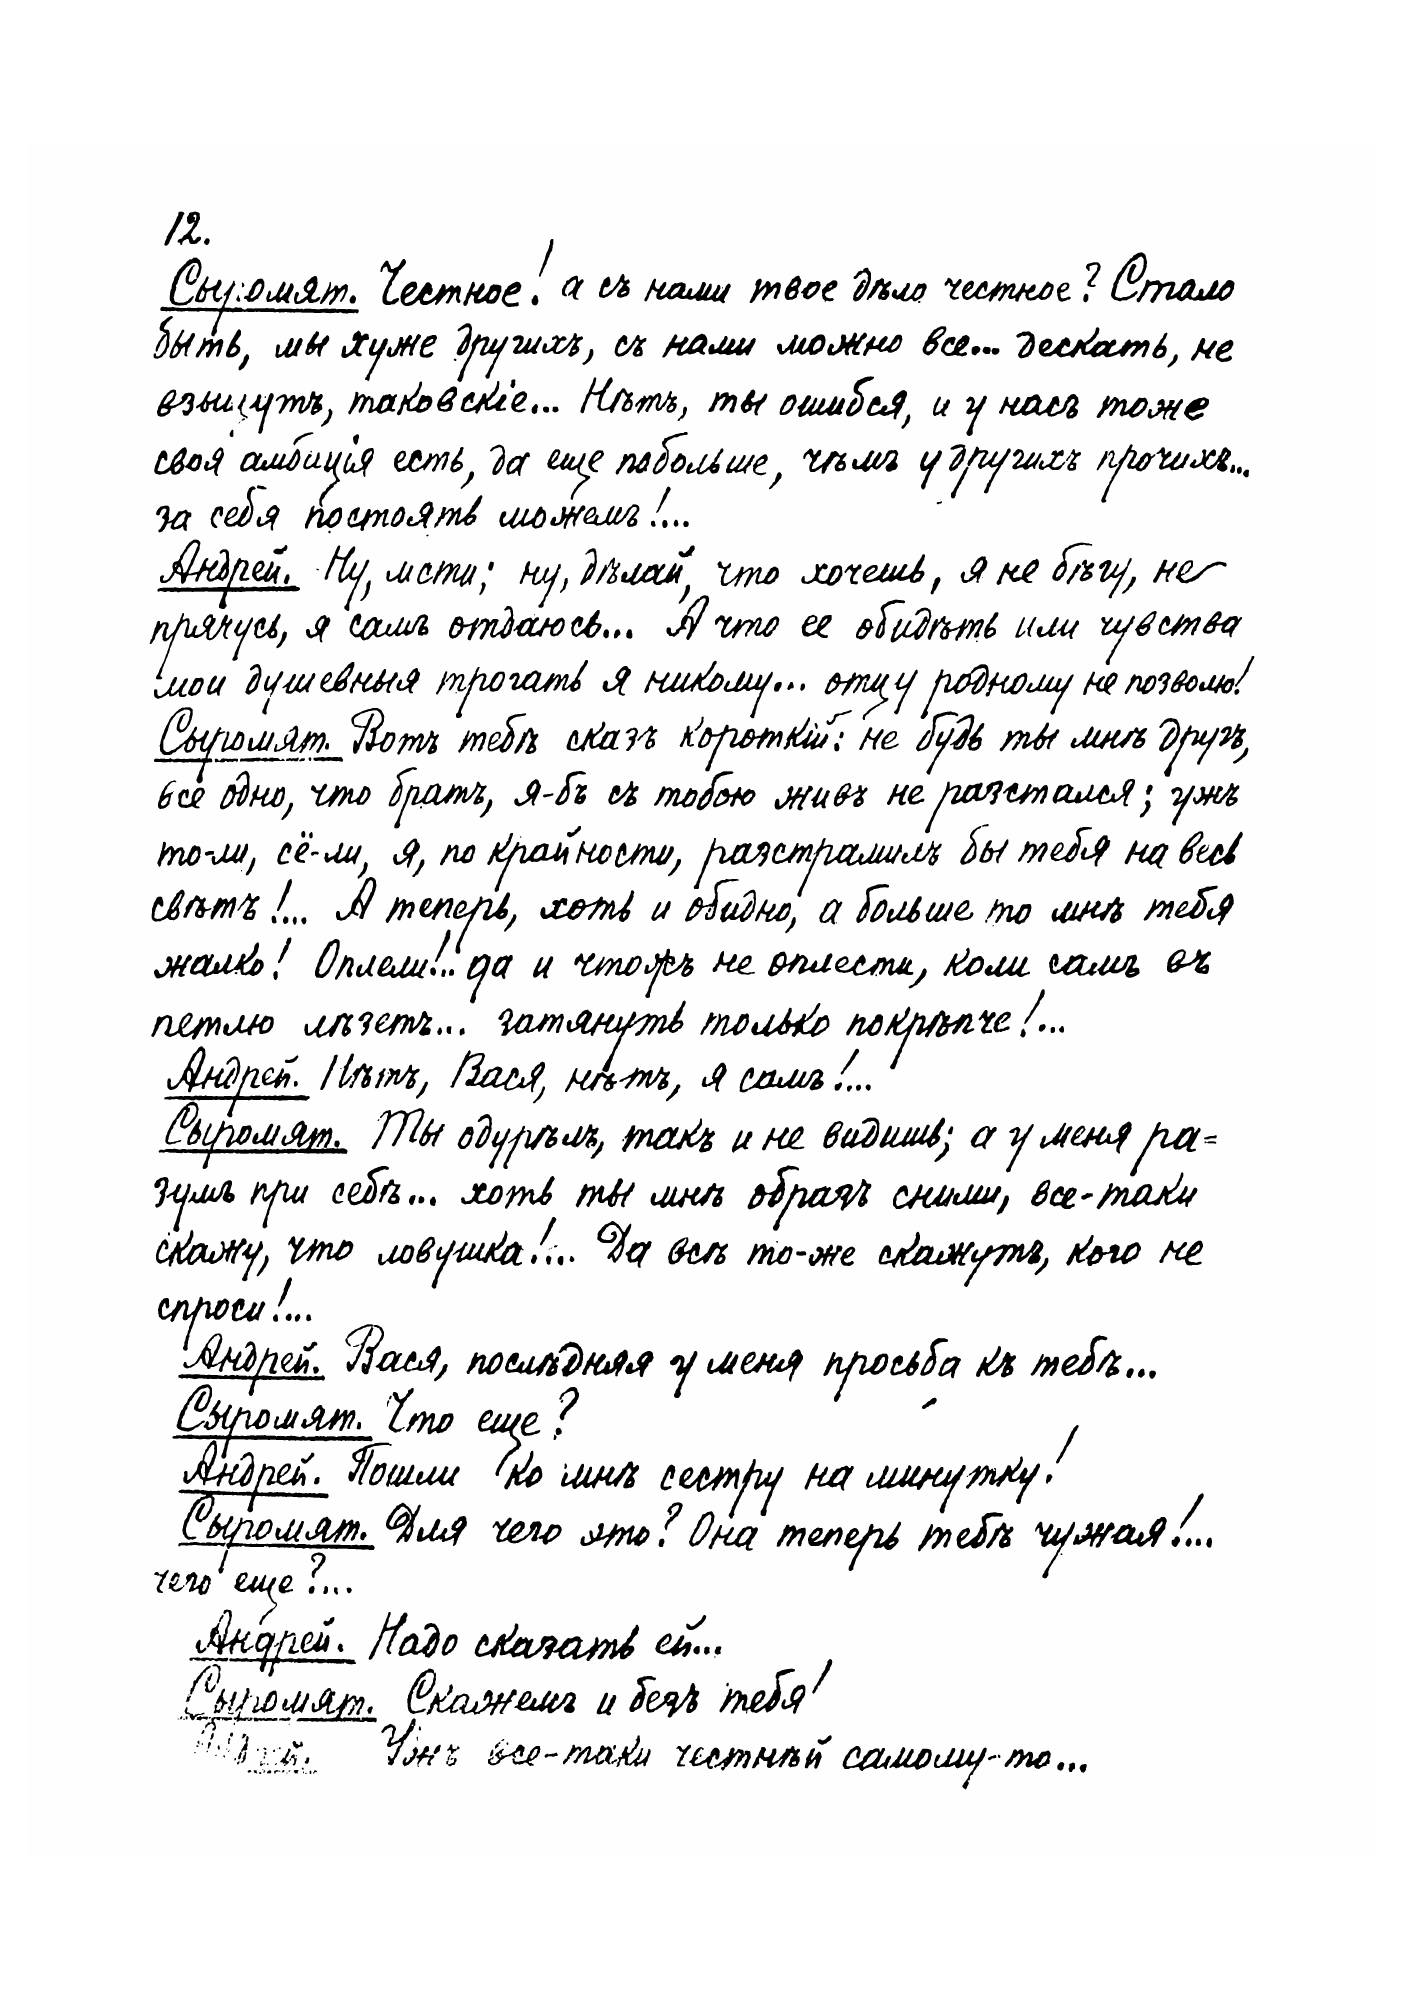 12.
Сыромят. Честное! а съ нами твое дѣло честное? Стало
быть, мы хуже другихъ, съ нами можно все... дескать, не
взыщутъ, таковскіе... Нѣтъ, ты ошибся, и у насъ тоже
своя амбиція есть, да еще побольше, чѣмъ у другихъ прочихъ...
за себя постоять можемъ!...
Андрей. Ну, мсти; ну, дѣлай, что хочешь, я не бѣгу, не
прячусь, я самъ отдаюсь... А что ее обидѣть или чувства
мои душевныя трогать я никому... отцу родному не позволю!
Сыромят. Вотъ тебѣ сказъ короткій: не будь ты мнѣ другъ,
все одно, что братъ, я-бъ съ тобою живъ не разстался; ужъ
то-ли, сё-ли, я, по крайности, разстрамилъ бы тебя на весь
свѣтъ!... А теперь, хоть и обидно, а больше то мнѣ тебя
жалко! Оплели!.. да и чтожъ не оплести, коли самъ въ
петлю лѣзетъ... затянуть только покрѣпче!...
Андрей. Нѣтъ, Вася, нѣтъ, я самъ!...
Сыромят. Ты одурѣлъ, такъ и не видишь; а у меня ра=
зумъ при себѣ... хоть ты мнѣ образъ сними, все-таки
скажу, что ловушка!... Да всѣ то-же скажутъ, кого не
спроси!...
Андрей. Вася, послѣдняя у меня просьба къ тебѣ...
Сыромят. Что еще?
Андрей. Пошли ко мнѣ сестру на минутку!
Сыромят. Для чего это? Она теперь тебѣ чужая!...
чего еще?...
Андрей. Надо сказать ей...
Сыромят. Скажемъ и безъ тебя!
Андрей. Ужъ все-таки честнѣй самому-то...